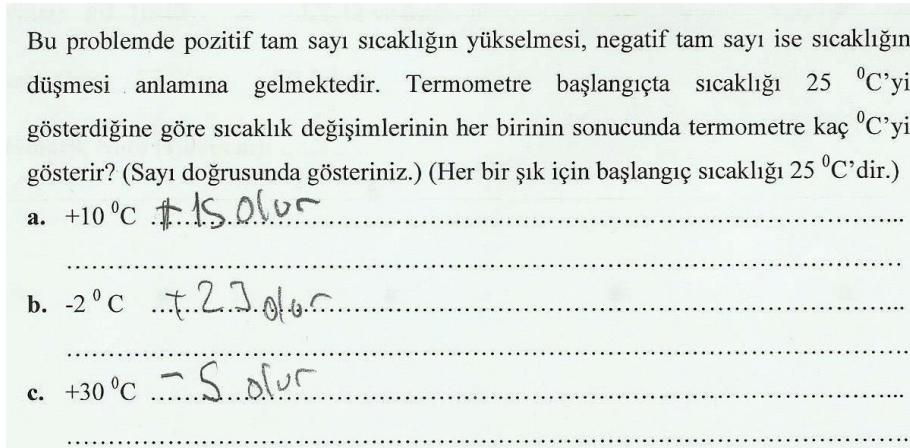 Bu problemde pozitif tam sayı sıcaklığın yükselmesi, negatif tam sayı ise sıcaklığın
düşmesi anlamına gelmektedir. Termometre başlangıçta sıcaklığı 25 ⁰C'yi
gösterdiğine göre sıcaklık değişimlerinin her birinin sonucunda termometre kaç ⁰C'yi
gösterir? (Sayı doğrusunda gösteriniz.) (Her bir şık için başlangıç sıcaklığı 25 ⁰C'dir.)
a. +10 ⁰C +15 olur
b. -2 ⁰ C +23 olur
c. +30 ⁰C -5 olur